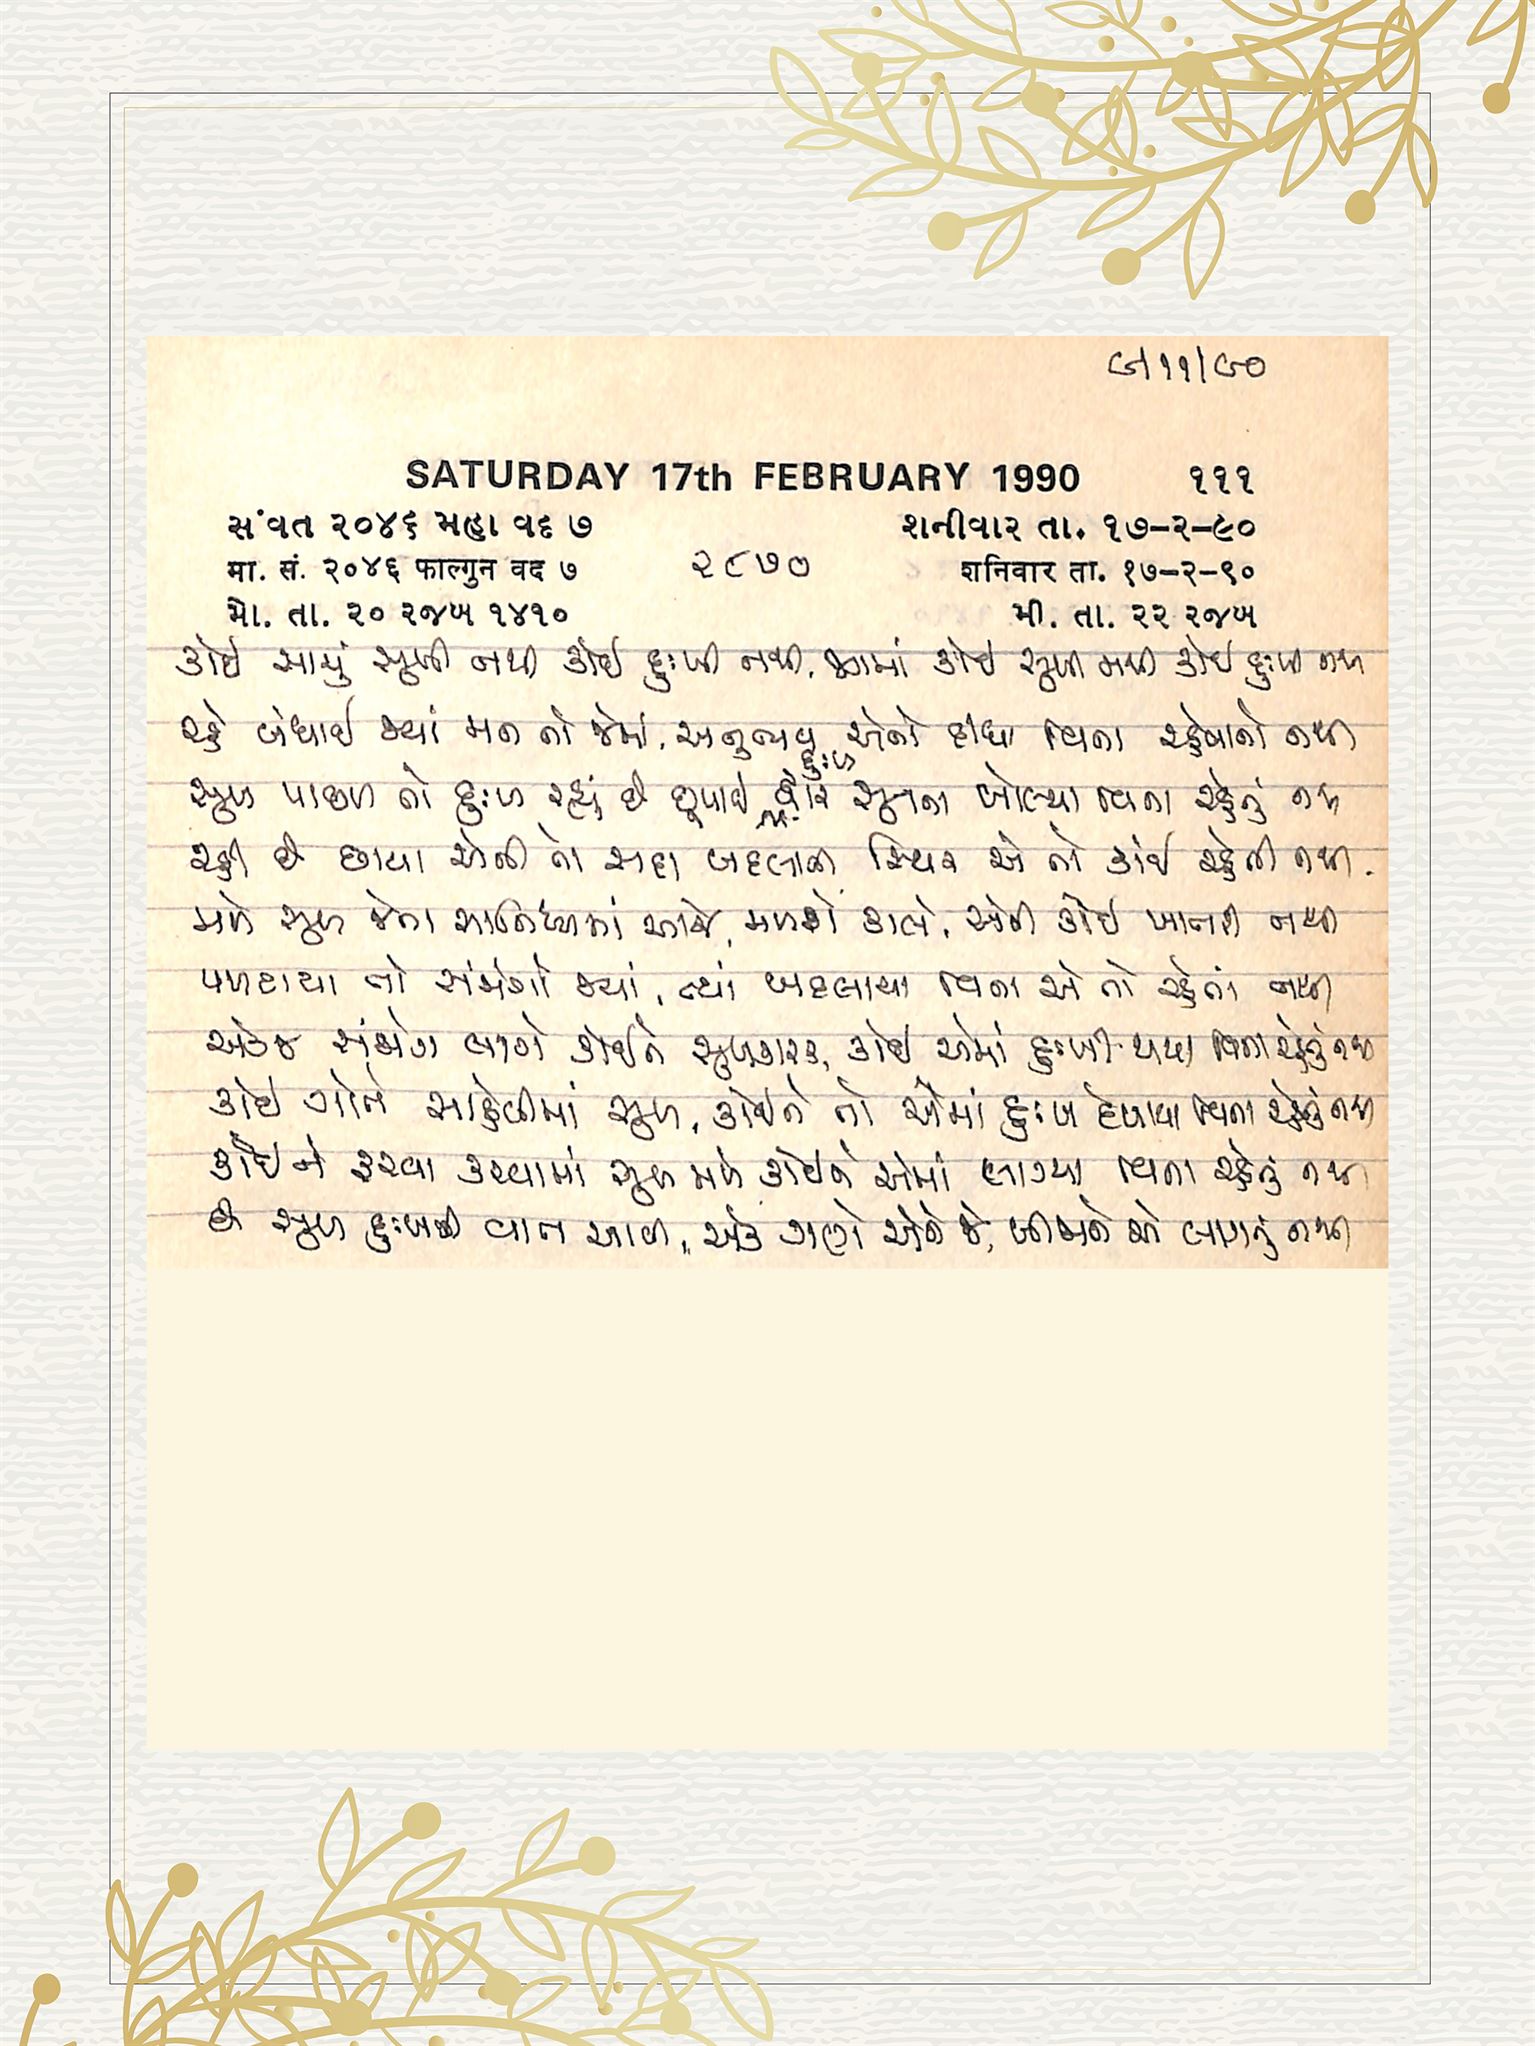 ૯/૧૧/૯૦
SATURDAY 17th FEBRUARY 1990 ૧૧૧
સંવત ૨૦૪૬ મહા વદ ૭ શનીવાર તા. ૧૭-૨-૯૦
मा. सं. २०४६ फाल्गुन वद ७ ૨૮૭૦ शनिवार ता. १७-२-९०
મૌ. તા. ૨૦ રજબ ૧૪૧૦ મી. તા. ૨૨ રજબ
કોઈ સાચું સુખી નથી કોઈ દુઃખી નથી, જગમાં કોઈ સુખી નથી કોઈ દુઃખી નથી
રહે બંધાઈ જ્યાં મન તો જેમાં, અનુભવ એનો દીધા વિના રહેવાનો નથી
સુખ પાછળ તો દુઃખ રહ્યું છે છુપાઈ દુઃખ સૂતના બોલ્યા વિના રહેતું નથી
રહી છે છાયા એની તો સદા બદલાતી સ્થિર એ તો કાંઈ રહેતી નથી.
મળે સુખ જેના સાનિધ્યમાં આજે, મળશે કાલે, એની કોઈ ખાતરી નથી
પળટાયા તો સંજોગો જ્યાં, ત્યાં બદલાયા વિના એ તો રહેતાં નથી
એકજ સંજોગ લાગે કોઈને સુખકારક, કોઈ એમાં દુઃખી થયા વિના રહેતું નથી
કોઈ ગોતે સાહેબીમાં સુખ, કોઈને તો એમાં દુઃખ દેખાયા વિના રહેતું નથી
કોઈને ફરવા હરવામાં સુખ મળે કોઈને એમાં લાગ્યા વિના રહેતું નથી
છે સુખ દુઃખની વાત આવી, એક ગણે એને જે, બીજાને એ લાગતું નથી